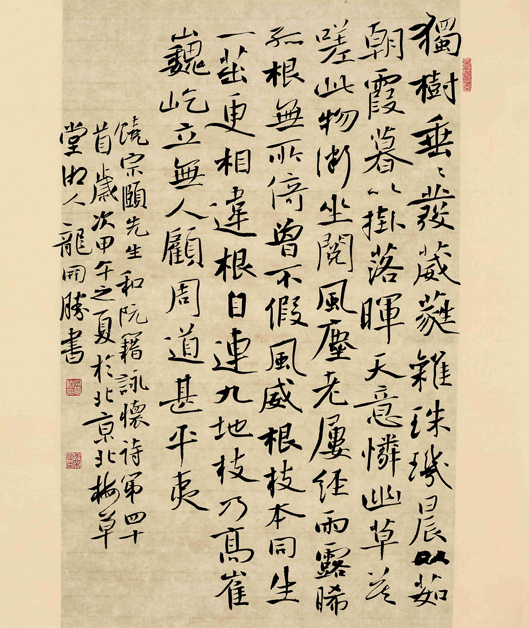 獨樹垂〻發葳蕤雜珠璣晨以茹
朝霞暮以掛落暉天意憐幽草營
嗟此物漸坐閱風塵老屢經雨露晞
孤根無所倚曾不假風威根枝本同生
一莖更相違根自連九地枝乃高崔
巍屹立無人顧周道甚平夷
饒宗頤先生和阮籍詠懷詩第四十
首歲次甲午之夏於北京北梅草
堂湘人龍開勝書